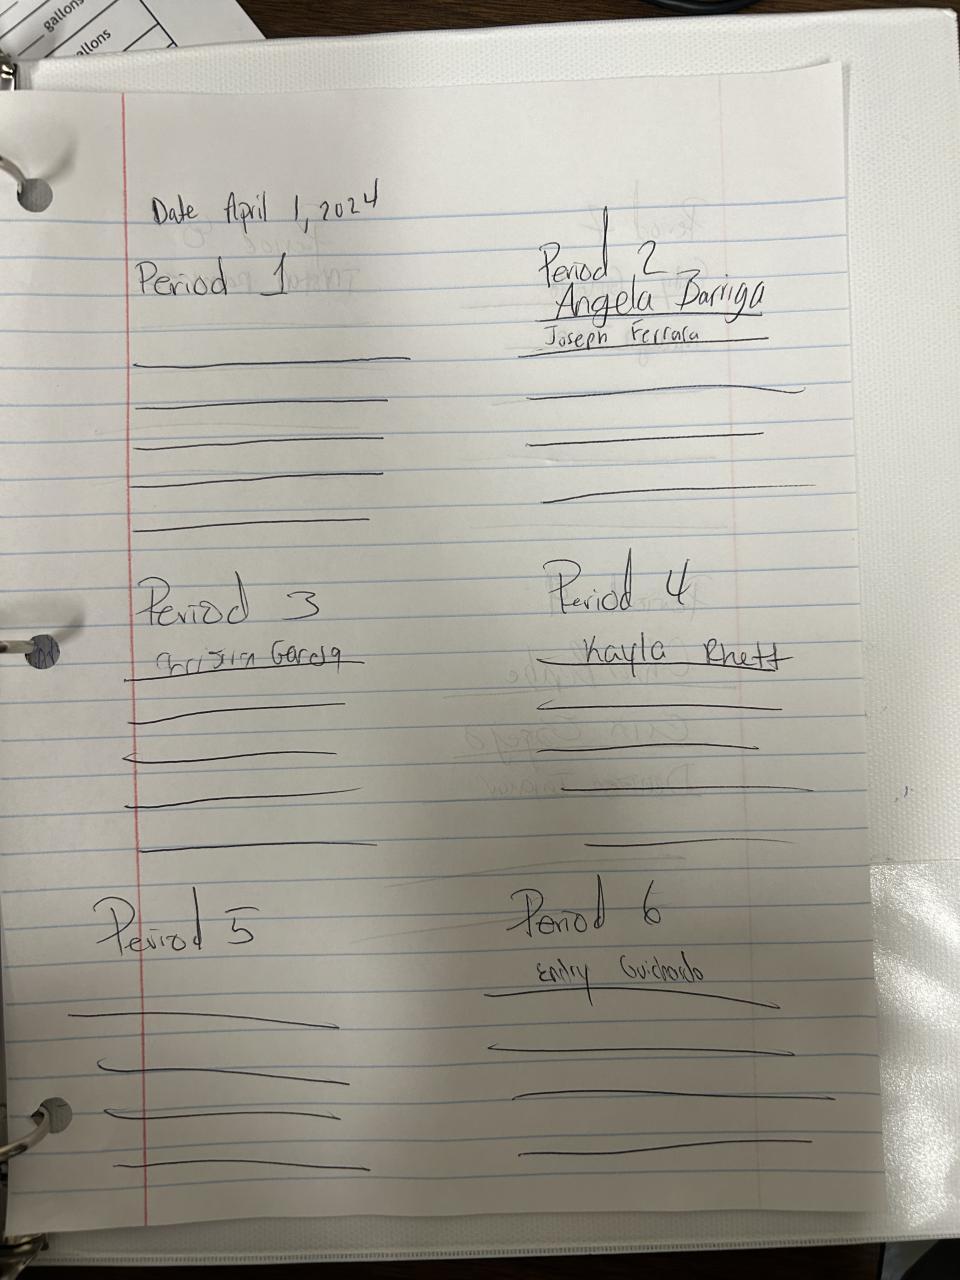 gallons
allons
Date April 1, 2024
Period 1
Period 2
Angela Barriga
Joseph Ferrara
Period 3
Christian Garcia
Period 4
Kayla Rhett
Period 5
Period 6
Endry Guichardo